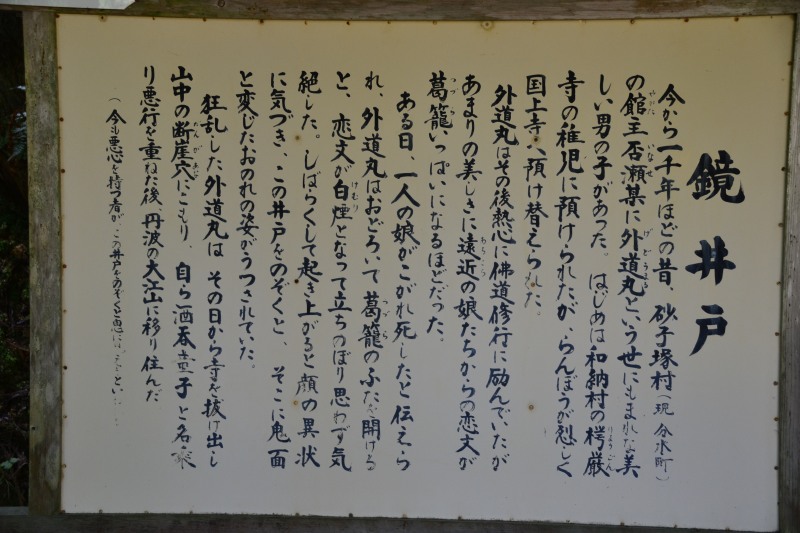 鏡井戸
今から一千年ほどの昔、砂子塚村(現分水町)
の館主否瀬某に外道丸という世にもまれな美
しい男の子があった。はじめは和納村の楞厳
寺の稚児に預けられたが、らんぼうが烈しく
国上寺へ預け替えられた。
外道丸はその後熱心に佛道修行に励んでいたが
あまりの美しさに遠近の娘たちからの恋文が
葛籠いっぱいになるほどだった。
ある日、一人の娘がこがれ死したと伝えら
れ、外道丸はおどろいて葛籠のふたを開ける
と、恋文が白煙となって立ちのぼり思わず気
絶した。しばらくして起き上がると顔の異状
に気づき、この井戸をのぞくと、そこに鬼面
と変じたおのれの姿がうつされていた。
狂乱した外道丸は その日から寺を抜け出し
山中の断崖穴にこもり、自ら酒呑童子と名乗
り悪行を重ねた後、丹波の大江山に移り住んだ
(今も悪心を持つ者が、この井戸をのぞくと悪